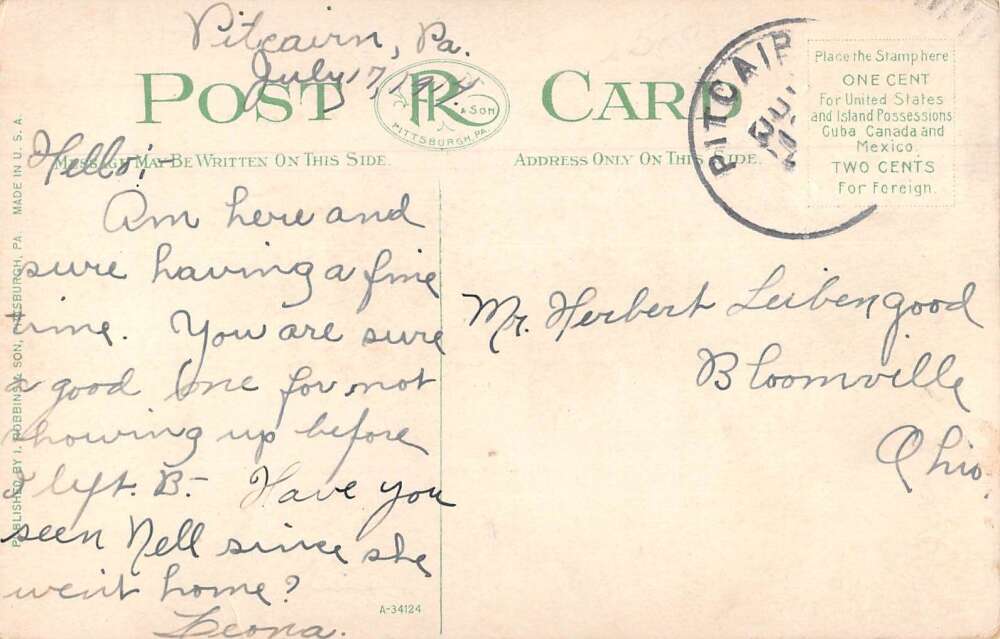 Pitcairn, Pa.
July 17, 19
POST CARD
R & SON
PITTSBURGH, PA.
MESSAGE MAY BE WRITTEN ON THIS SIDE.
ADDRESS ONLY ON THIS SIDE.
PITCAIR
Place the Stamp here
ONE CENT
For United States
and Island Possessions
Cuba Canada and
Mexico.
TWO CENTS
For Foreign.
Hello:-
Am here and
sure having a fine
time. You are sure
a good one for not
showing up before
I left. B.- Have you
seen Nell since she
went home?
Leona.
Mr. Herbert Leibengood
Bloomville
Ohio.
PUBLISHED BY I. ROBBINS & SON, PITTSBURGH, PA. MADE IN U. S. A.
A-34124